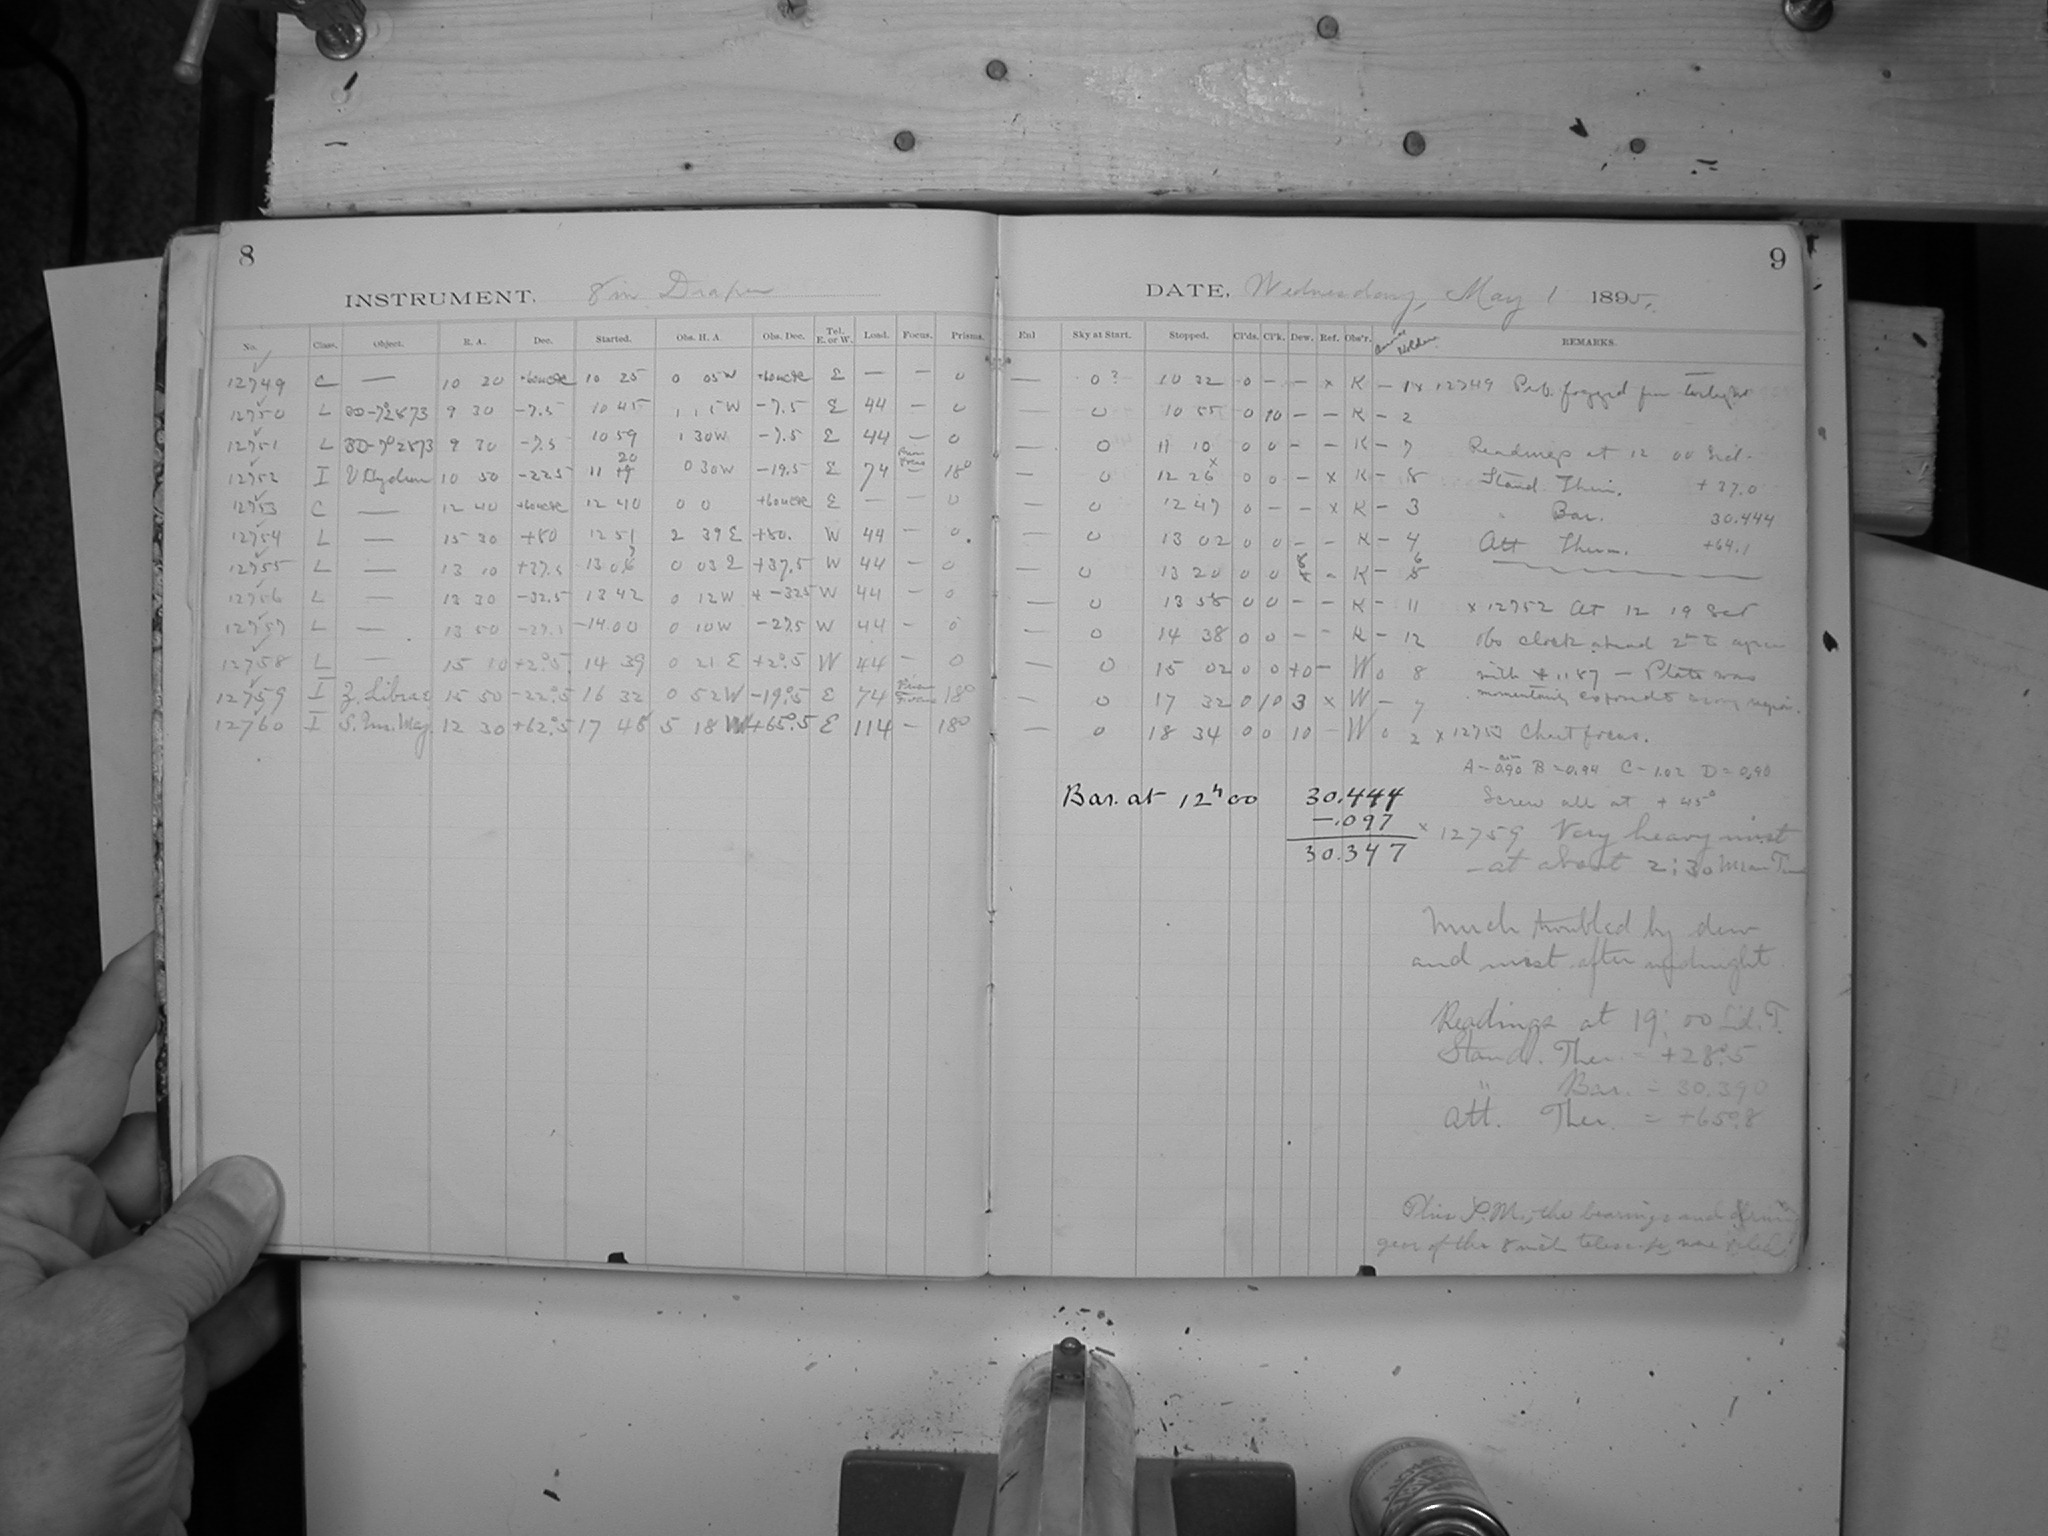 8
INSTRUMENT. 8 in Draper
No. Class. Object. R. A. Dec. Started. Obs. H. A. Obs. Dec. Tel. E. or W. Load. Focus. Prisms.
12749 C — 10 20 10 25 0 05 W E — — 0
12750 L BD-7°2873 9 30 -7.5 10 45 1 15 W -7.5 E 44 — 0
12751 L BD-7°2873 9 30 -7.5 10 59 1 30 W -7.5 E 44 — 0
12752 I U Hydrae 10 50 -22.5 11 20 0 30 W -19.5 E 74 18°
12753 C — 12 40 12 40 0 0 E — — 0
12754 L — 15 30 +80 12 51 2 39 E +80. W 44 — 0
12755 L — 13 10 +37.5 13 07 0 03 E +37.5 W 44 — 0
12756 L — 13 30 -32.5 13 42 0 12 W -32.5 W 44 — 0
12757 L — 13 50 -27.5 14.00 0 10 W -27.5 W 44 — 0
12758 L — 15 10 +2°.5 14 39 0 21 E +2°.5 W 44 — 0
12759 I Z. Librae 15 50 -22°.5 16 32 0 52 W -19°.5 E 74 18°
12760 I S. Urs. Maj. 12 30 +62°.5 17 48 5 18 W +65°.5 E 114 — 18°
9
DATE, Wednesday, May 1 1895.
Enl Sky at Start. Stopped. Cl'ds. Cl'k. Dew. Ref. Obs'r. REMARKS.
— 0? 10 32 0 — — x K — 1 x 12749 Prob. fogged
— 0 10 55 0 10 — — K — 2
— 0 11 10 0 0 — — K — 7 Readings at 12 00 Sid.
— 0 12 26 0 0 — x K — 8 Stand Ther. +37.0
— 0 12 47 0 — — x K — 3 Bar. 30.444
— 0 13 02 0 0 — — K — 4 Att Therm. +64.1
— 0 13 20 0 0 — K — 6
— 0 13 58 0 0 — — K — 11 x 12752 At 12 19 Sid
— 0 14 38 0 0 — — K — 12 obs clock ahead
— 0 15 02 0 0 +0 — W 0 8 with — Plate was
— 0 17 32 0 10 3 x W — 7 momentarily exposed
— 0 18 34 0 0 10 — W 0 2 x 12753 Chart focus.
A = 0.90 B = 0.94 C = 1.02 D = 0.90
Screw all at + 45°
Bar. at 12ʰ 00 30.444
-.097
30.347
x 12759 Very heavy mist
at about 2:30 Mean Time
Much troubled by dew
and mist after midnight
Readings at 19:00 Sid. T.
Stand. Ther. = +28°.5
" Bar. = 30.390
Att. Ther. = +65°.8
This P.M., the bearings and driving
gear of the 8 inch telescope were oiled